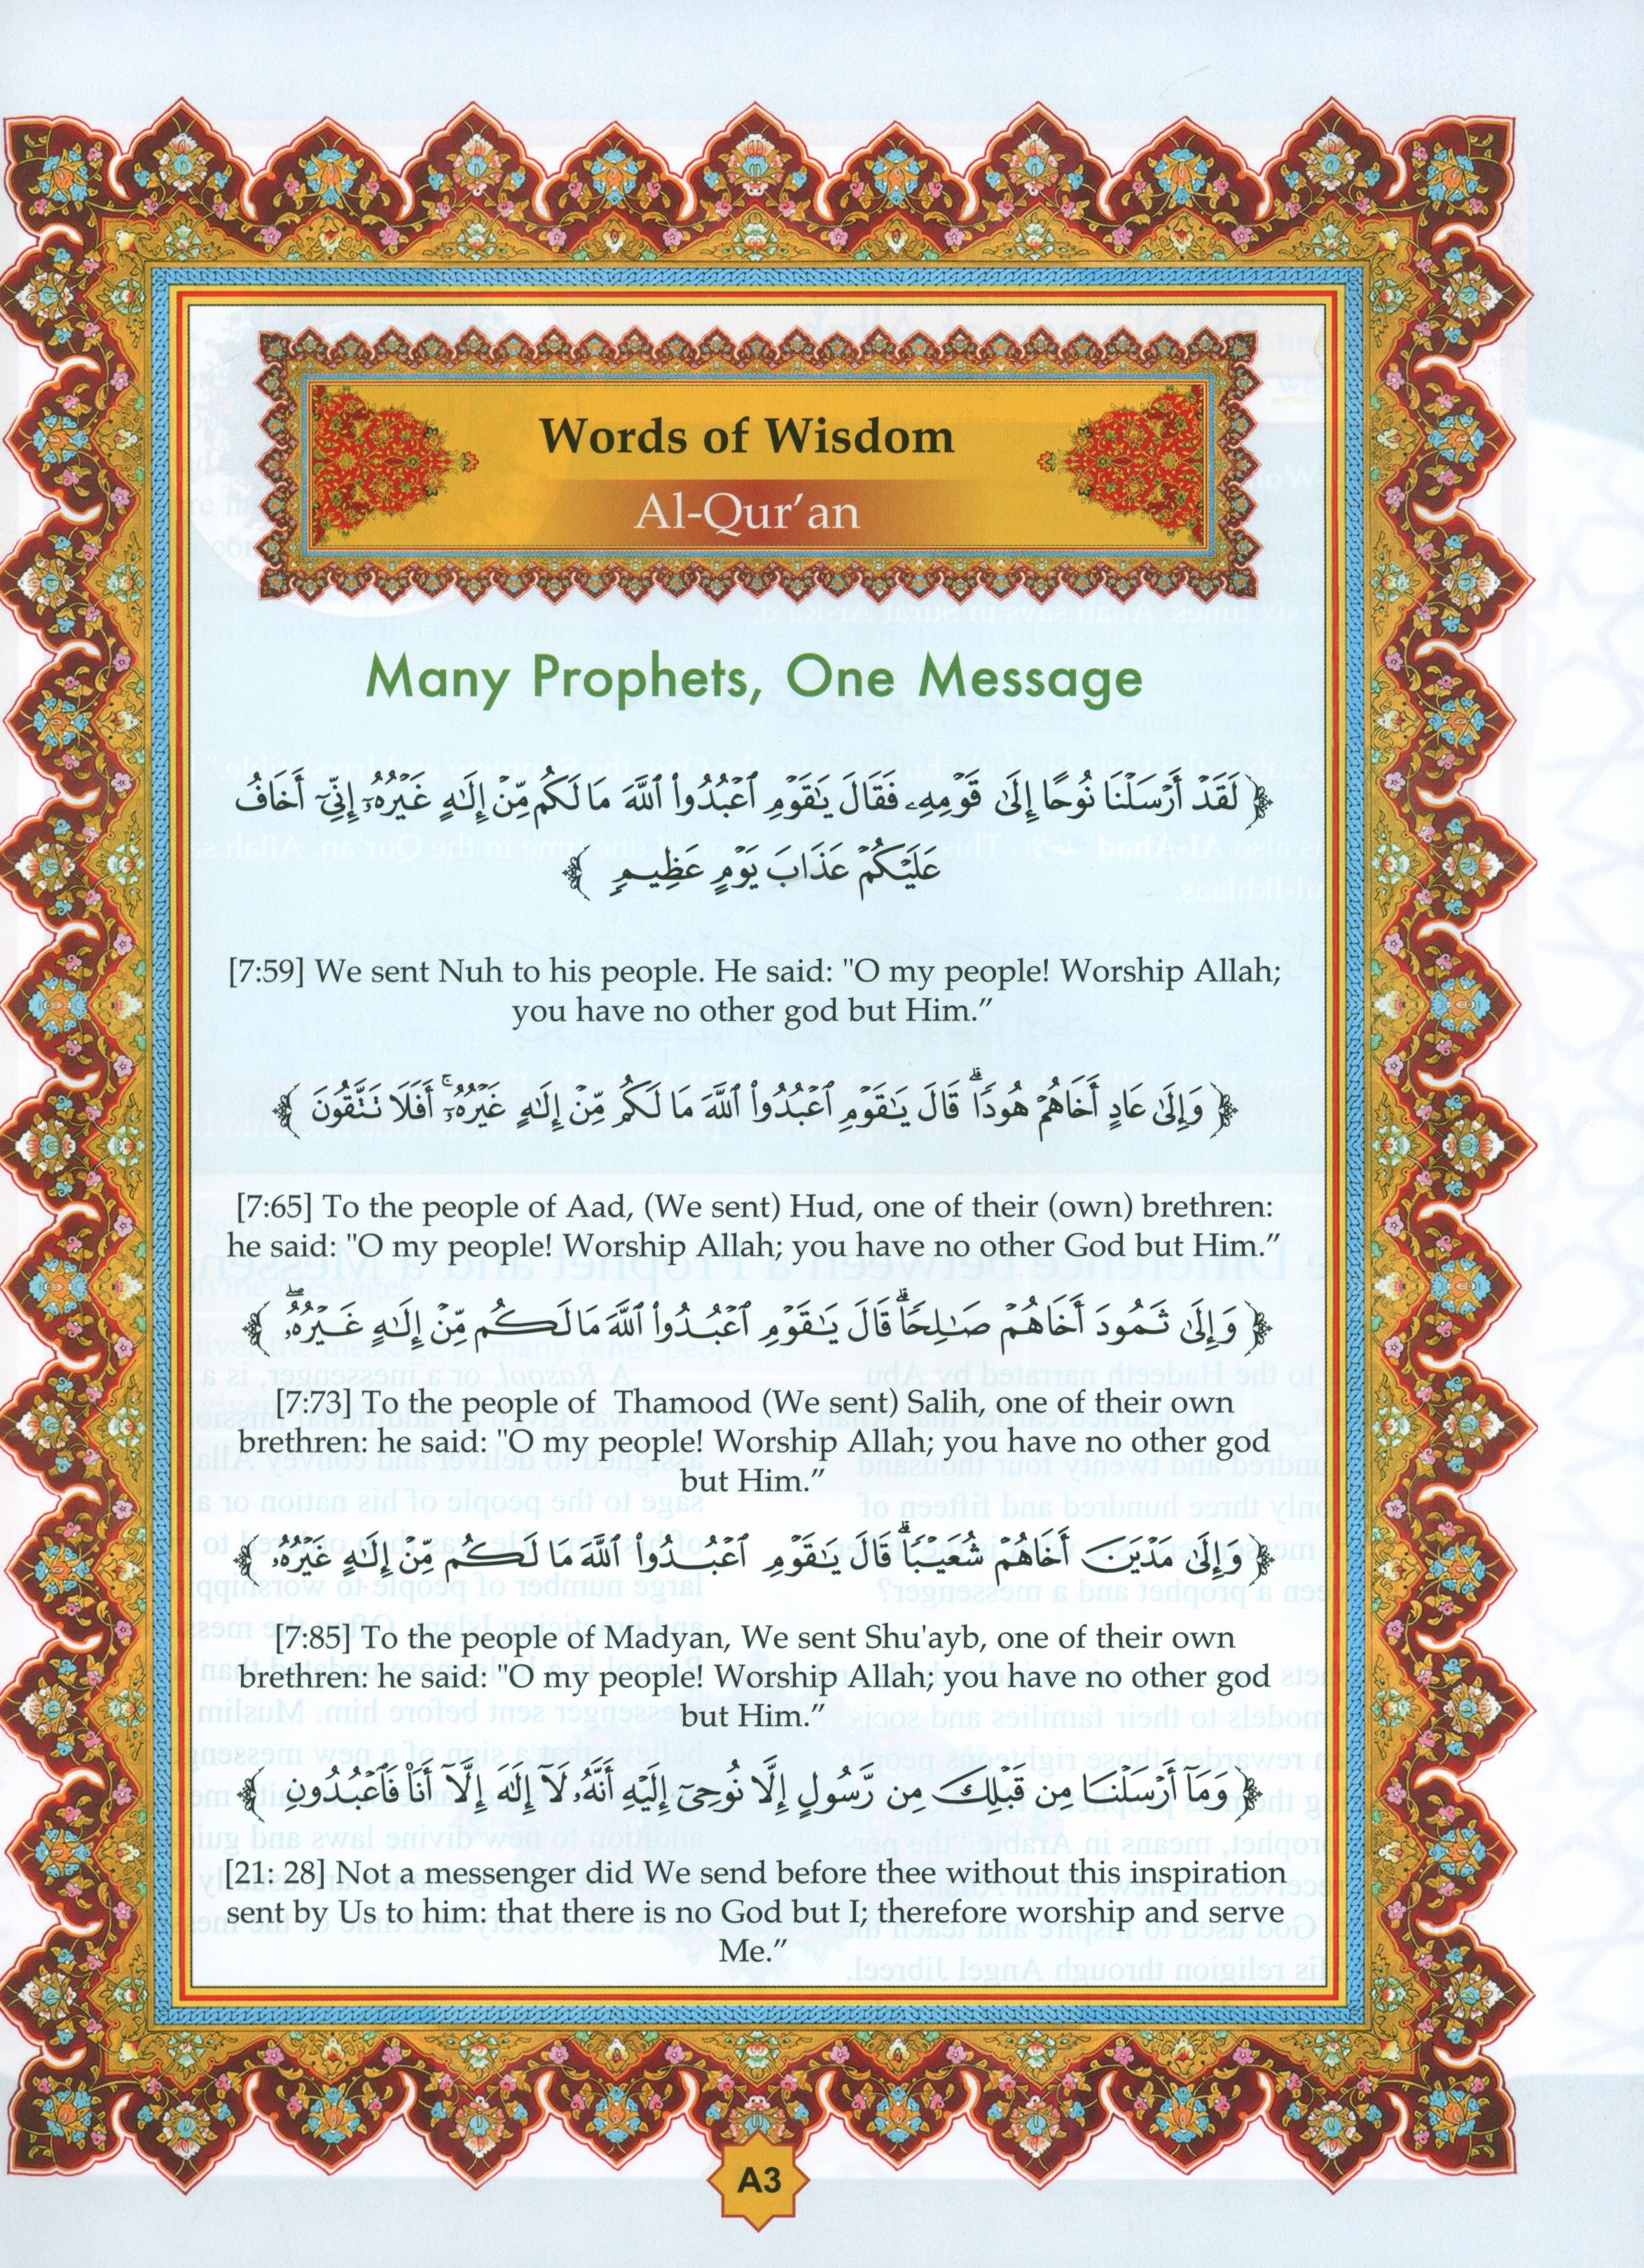 Words of Wisdom
Al-Qur’an
Many Prophets, One Message
﴿ لَقَدْ أَرْسَلْنَا نُوحًا إِلَىٰ قَوْمِهِۦ فَقَالَ يَـٰقَوْمِ ٱعْبُدُوا۟ ٱللَّهَ مَا لَكُم مِّنْ إِلَـٰهٍ غَيْرُهُۥٓ إِنِّىٓ أَخَافُ
عَلَيْكُمْ عَذَابَ يَوْمٍ عَظِيمٍ ﴾
[7:59] We sent Nuh to his people. He said: "O my people! Worship Allah;
you have no other god but Him.”
﴿ وَإِلَىٰ عَادٍ أَخَاهُمْ هُودًا ۗ قَالَ يَـٰقَوْمِ ٱعْبُدُوا۟ ٱللَّهَ مَا لَكُم مِّنْ إِلَـٰهٍ غَيْرُهُۥٓ ۚ أَفَلَا تَتَّقُونَ ﴾
[7:65] To the people of Aad, (We sent) Hud, one of their (own) brethren:
he said: "O my people! Worship Allah; you have no other God but Him.”
﴿ وَإِلَىٰ ثَمُودَ أَخَاهُمْ صَـٰلِحًا ۗ قَالَ يَـٰقَوْمِ ٱعْبُدُوا۟ ٱللَّهَ مَا لَكُم مِّنْ إِلَـٰهٍ غَيْرُهُۥ ۖ ﴾
[7:73] To the people of Thamood (We sent) Salih, one of their own
brethren: he said: "O my people! Worship Allah; you have no other god
but Him.”
﴿ وَإِلَىٰ مَدْيَنَ أَخَاهُمْ شُعَيْبًا ۗ قَالَ يَـٰقَوْمِ ٱعْبُدُوا۟ ٱللَّهَ مَا لَكُم مِّنْ إِلَـٰهٍ غَيْرُهُۥ ﴾
[7:85] To the people of Madyan, We sent Shu'ayb, one of their own
brethren: he said: "O my people! Worship Allah; you have no other god
but Him.”
﴿ وَمَآ أَرْسَلْنَا مِن قَبْلِكَ مِن رَّسُولٍ إِلَّا نُوحِىٓ إِلَيْهِ أَنَّهُۥ لَآ إِلَـٰهَ إِلَّآ أَنَا۠ فَٱعْبُدُونِ ﴾
[21: 28] Not a messenger did We send before thee without this inspiration
sent by Us to him: that there is no God but I; therefore worship and serve
Me.”
A3